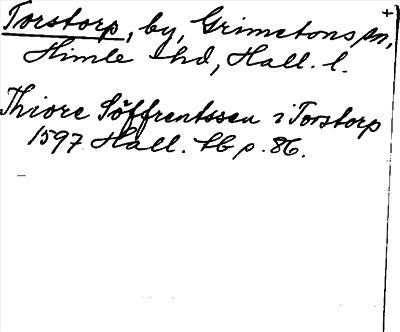 Torstorp, by, Grimetons sn,
Himle hd, Hall. l.
Thiore Söffrentssen i Torstorp
1597 Hall. tb p. 86.